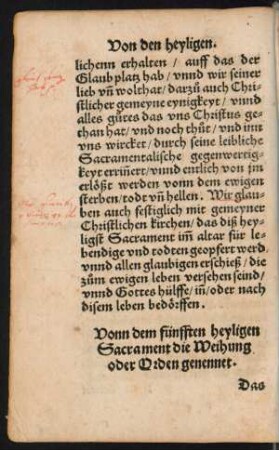 Von den heyligen.
lichenn erhalten / auff das der
Glaub platz hab / vnnd wir seiner
lieb vñ wolthat / darzů auch Chri⸗
stlicher gemeyne eynigkeyt / vnnd
alles gůtes das vns Christus ge⸗
than hat / vnd noch thůt / vnd imt
vns wircket / durch seine leibliche
Sacramentalische gegenwertig⸗
keyt erriñert / vnnd entlich von jm
erlößt werden vonn dem ewigen
sterben / todt vñ hellen. Wir glau⸗
ben auch festiglich mit gemeyner
Christlichen kirchen / das diß hey⸗
ligst Sacrament im̃ altar für le⸗
bendige vnd todten geopfert werd
vnnd allen glaubigen erschieß / die
zům ewigen leben versehen seind /
vnnd Gottes hülffe / im̃ / oder nach
disem leben bedörffen.
Vonn dem fünfften heyligen
Sacrament die Weihung
oder Orden genennet.
Das